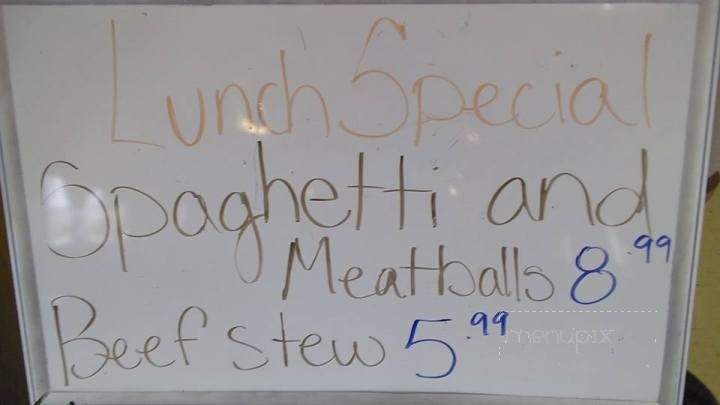 Lunch Special
Spaghetti and
Meatballs 8.99
Beef stew 5.99
menupix